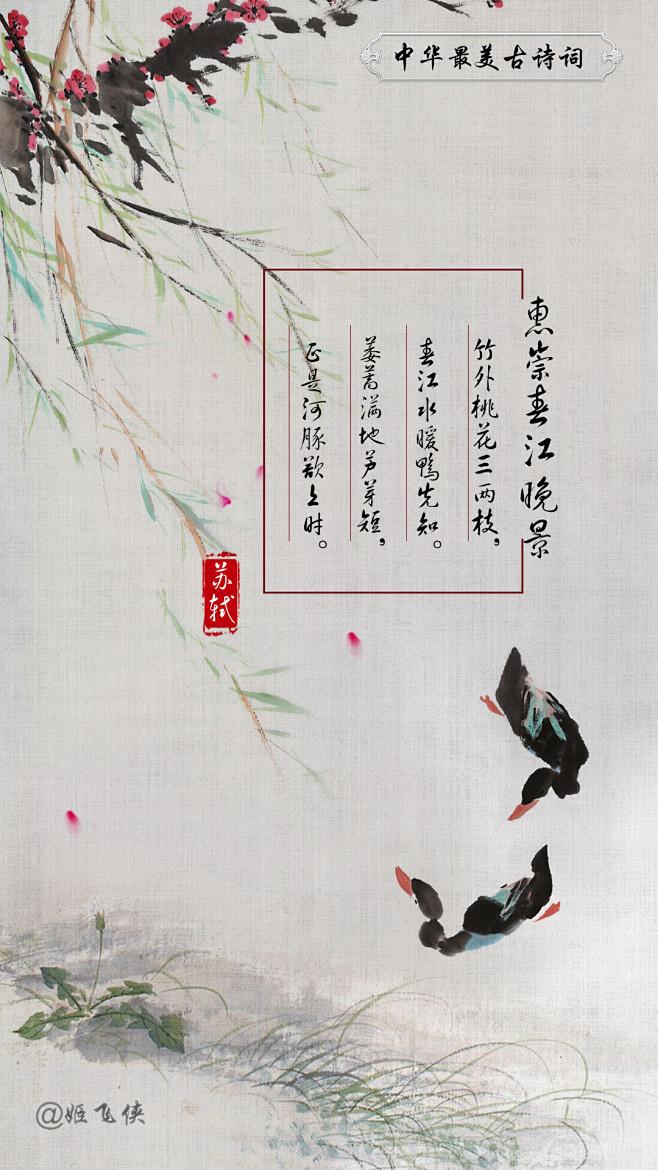 中华最美古诗词
惠崇春江晚景
竹外桃花三两枝，
春江水暖鸭先知。
蒌蒿满地芦芽短，
正是河豚欲上时。
苏轼
@姬飞侠